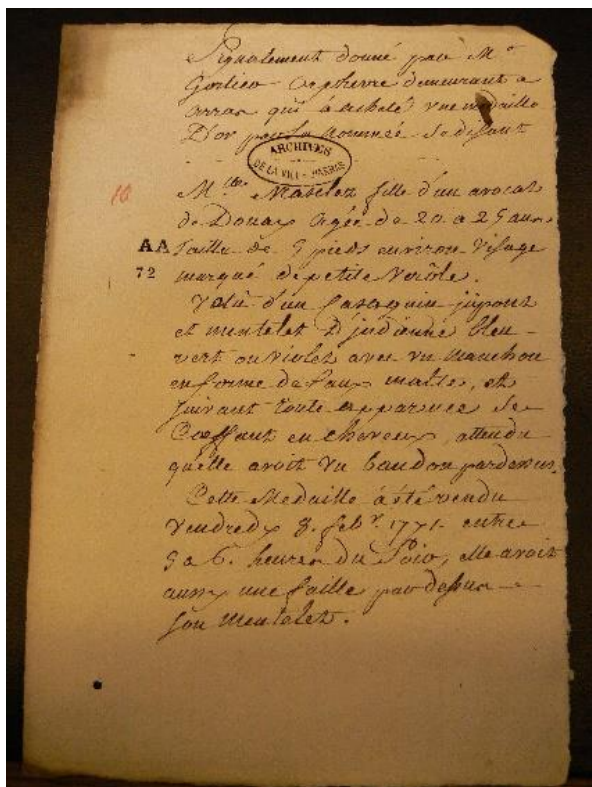 Signalement donné par Mr
Orphevre demeurant a
arras qui à acheté une medaille
D'or par la nommée se disant
ARCHIVES
DE LA VILLE
16
Mlle fille d'un avocat
de Douay agée de 20 a 25 ans
AA
Taille de 5 pieds environ visage
72
marqué de petite verôle.
Vetü d'un Casaquin jupons
et mentelet d'indienne bleu
vert ou violet avec un manchou
en forme de faux martre, et
suivant toute apparence se
Coeffant en cheveux, attendu
quelle avoit un bandon pardessus.
Cette Medaille à eté vendu
vendredy 8. febr. 1771 entre
5 a 6. heures du Soir, elle avoit
aussy une faille par dessus
son mentelet.